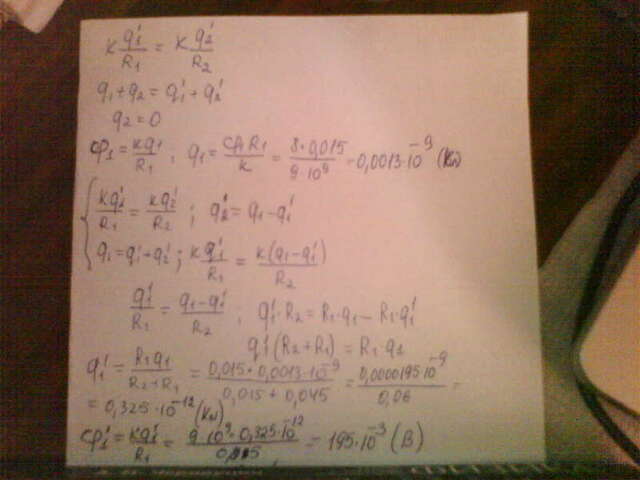 k q₁'/R₁ = k q₂'/R₂
q₁ + q₂ = q₁' + q₂'
q₂ = 0
φ₁ = kq₁/R₁ ; q₁ = φ₁R₁/k = 8·0,015/9·10⁹ = 0,0013·10⁻⁹ (Кл)
{ kq₁'/R₁ = kq₂'/R₂ ; q₂' = q₁ - q₁'
q₁ = q₁' + q₂' ; kq₁'/R₁ = k(q₁ - q₁')/R₂
q₁'/R₁ = q₁ - q₁'/R₂ ; q₁'·R₂ = R₁·q₁ - R₁·q₁'
q₁'(R₂ + R₁) = R₁·q₁
q₁' = R₁q₁/R₂+R₁ = 0,015·0,0013·10⁻⁹/0,015+0,045 = 0,0000195·10⁻⁹/0,06 =
= 0,325·10⁻¹² (Кл)
φ₁' = kq₁'/R₁ = 9·10⁹·0,325·10⁻¹²/0,015 = 195·10⁻³ (В)